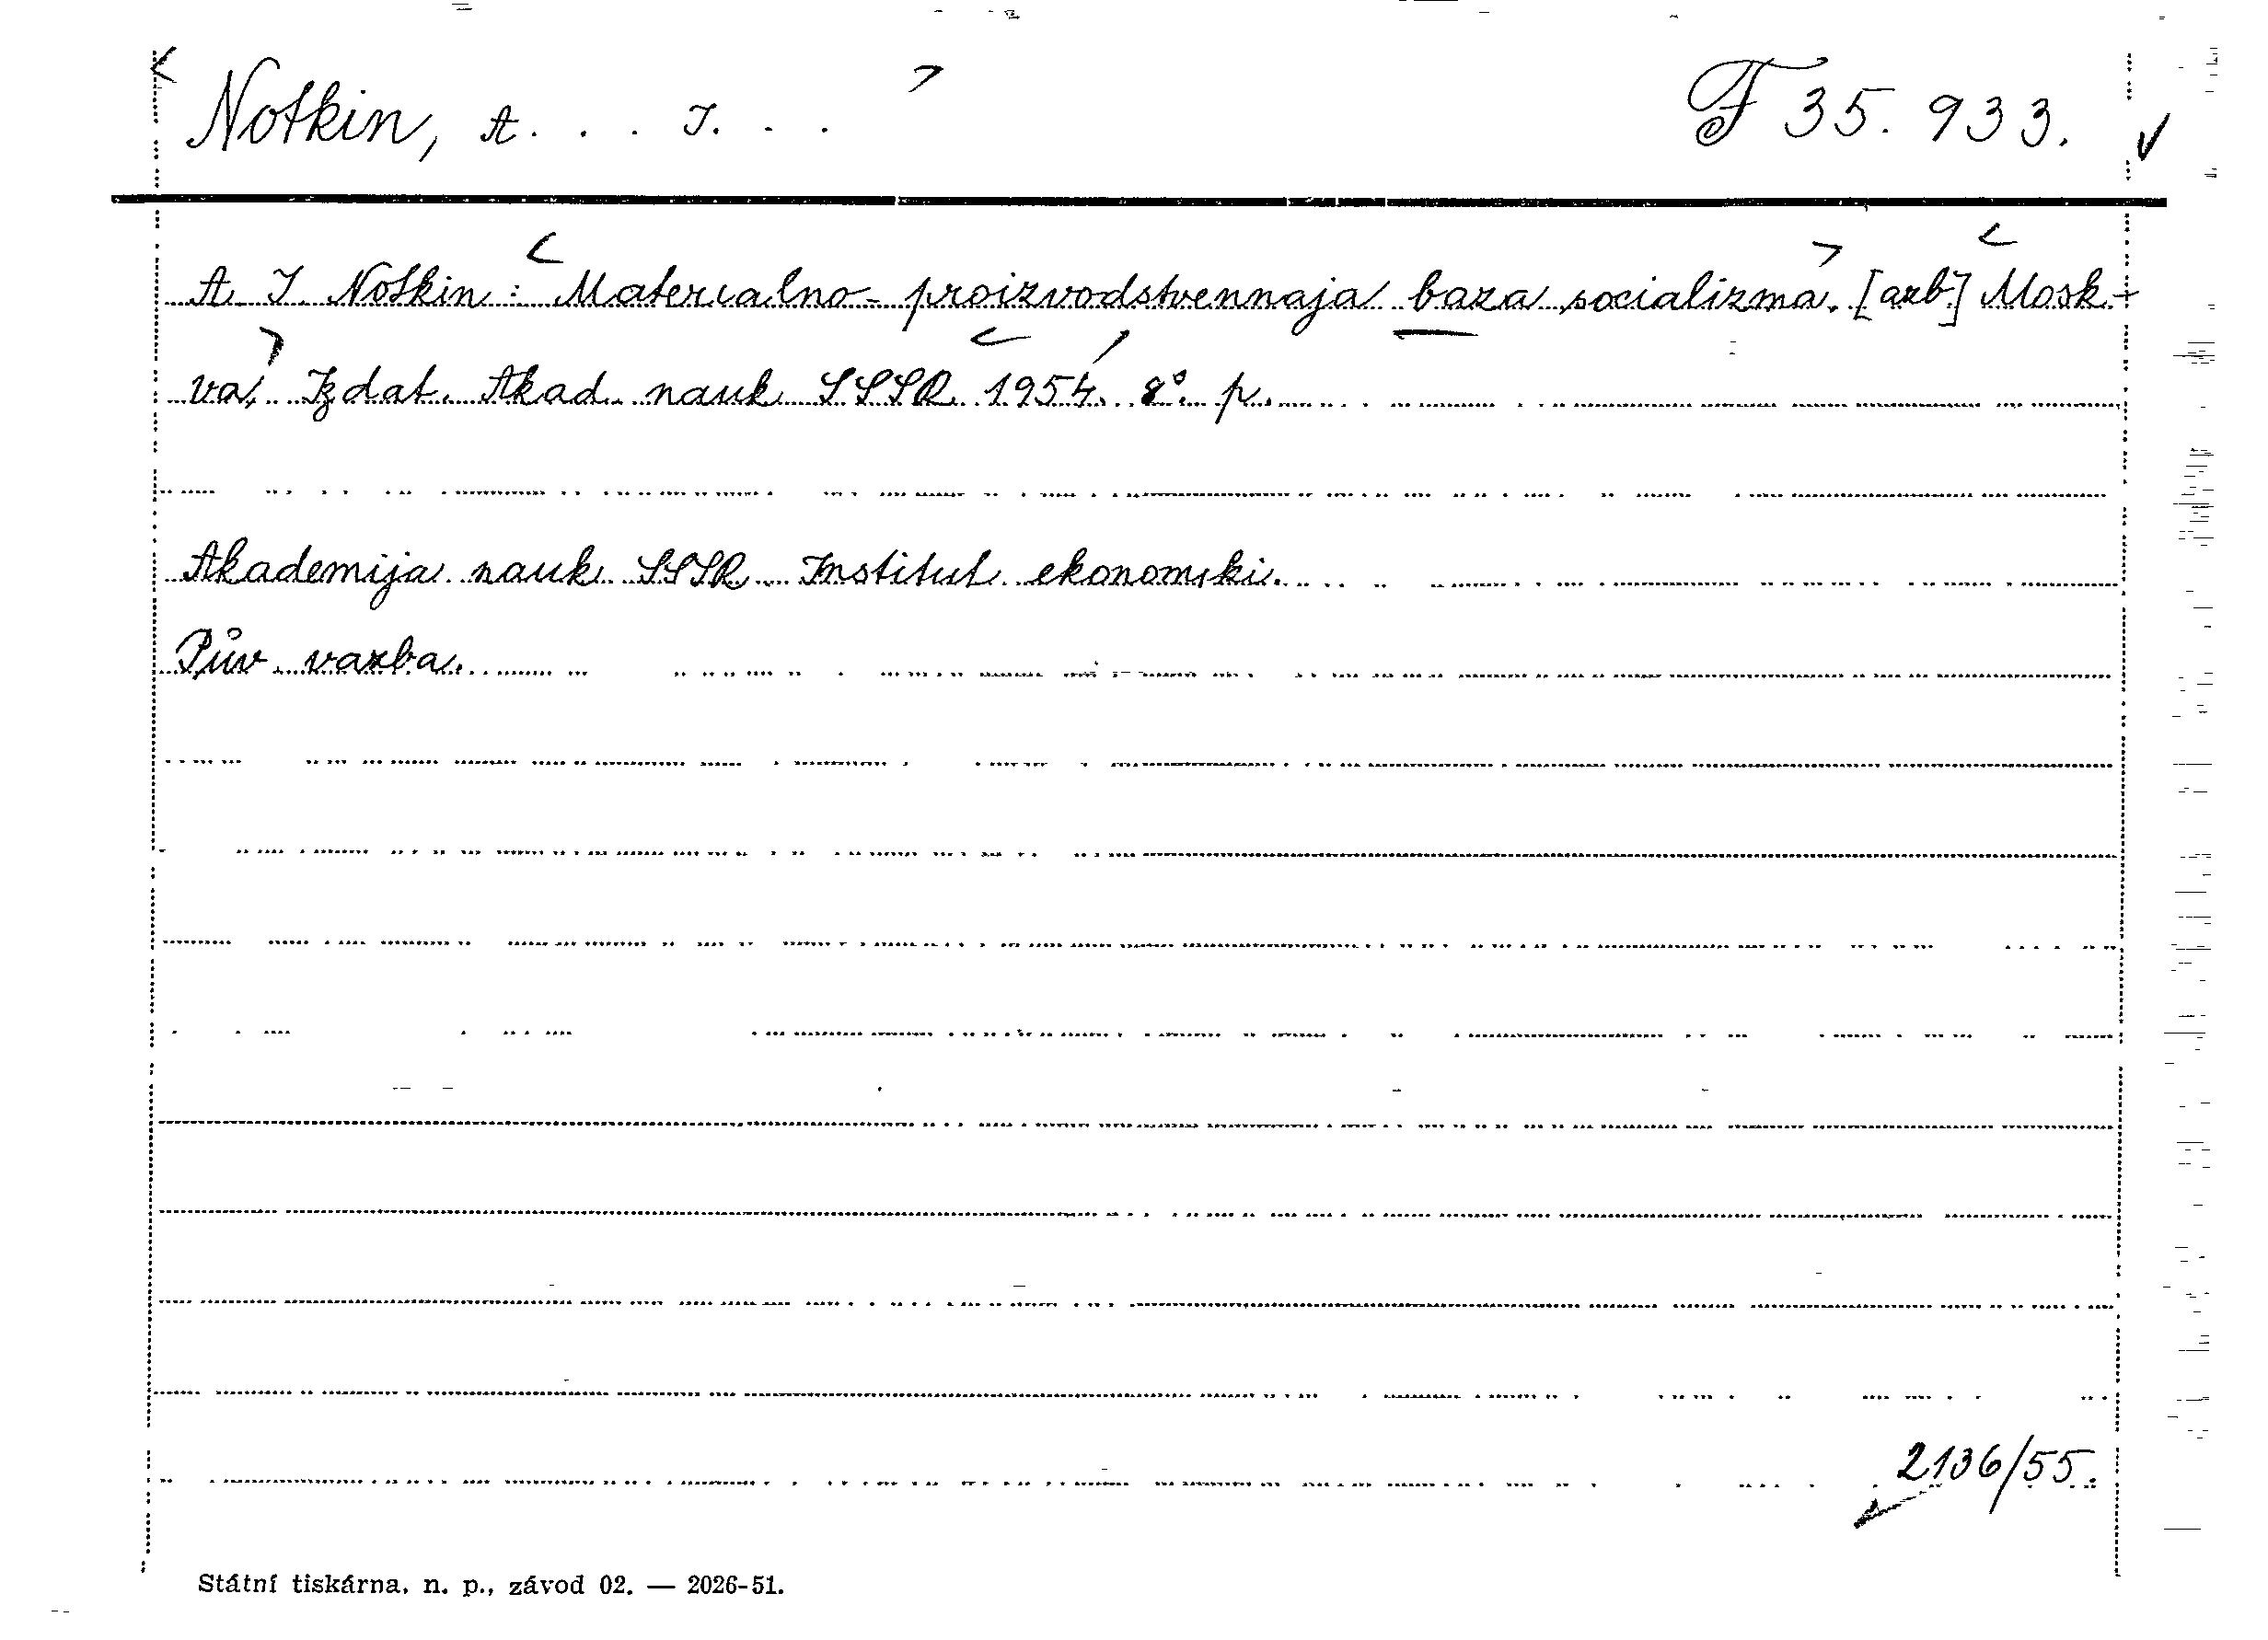 Notkin, A. . . I. . .
F 35. 933.
A. I. Notkin: Materialno-proizvodstvennaja baza socializma. [azb] Mosk-
va, Izdat. Akad. nauk SSSR 1954. 8°. p.
Akademija nauk SSSR. Institut ekonomiki.
Pův. vazba.
2136/55.
Státní tiskárna, n. p., závod 02. — 2026-51.